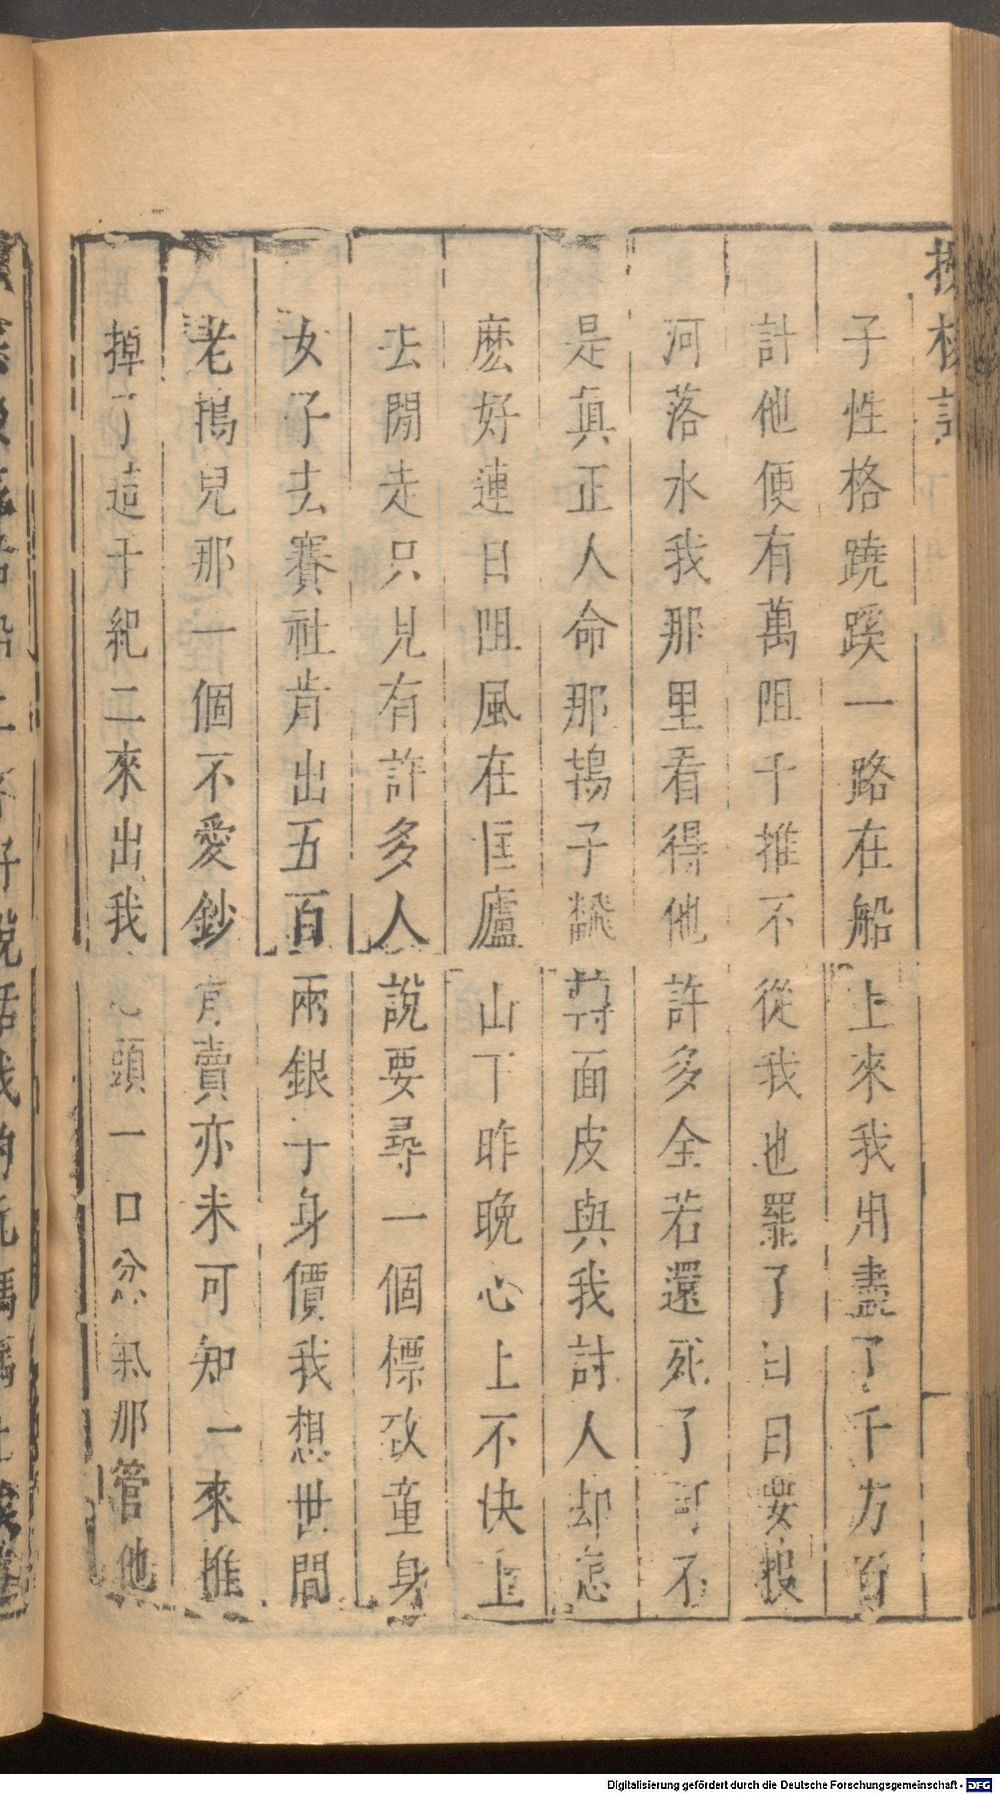 子性格蹺蹊一路在船上來我用盡了千方百
計他便有萬阻千推不從我也罷了日日要投
河落水我那里看得他許多全若還死了可不
是真正人命那鴇子飜轉面皮與我討人却怎
麽好連日阻風在匡廬山下昨晚心上不快上
去閒走只見有許多人說要尋一個標致童身
女子去賽社肯出五百兩銀子身價我想世間
老鴇兒那一個不愛鈔肯賣亦未可知一來推
掉了這干紀二來出我心頭一口忿氣那管他
Digitalisierung gefördert durch die Deutsche Forschungsgemeinschaft - DFG